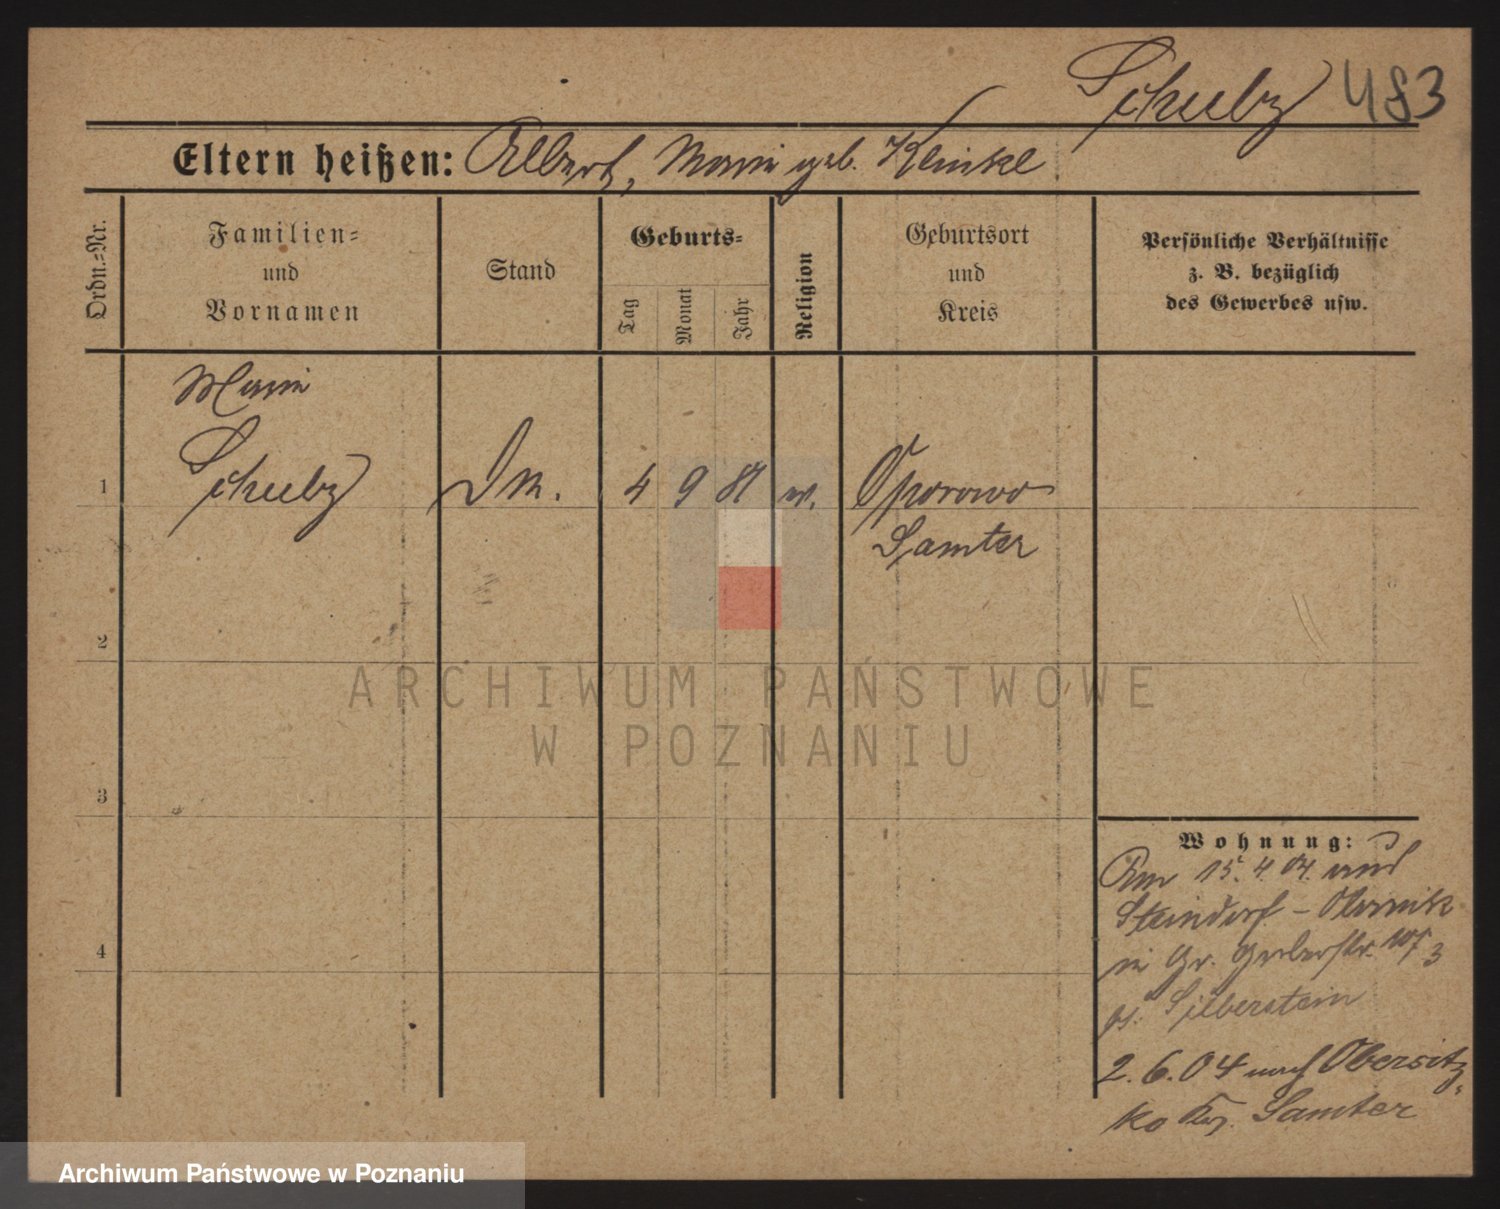 Schulz 483
Eltern heißen: Albert, Marie geb. Klinkel
Ordn.=Nr.
Familien=
und
Vornamen
Stand
Geburts=
Tag
Monat
Jahr
Religion
Geburtsort
und
Kreis
Persönliche Verhältnisse
z. B. bezüglich
des Gewerbes usw.
Marie
1 Schulz 4 9 Oporowo
Samter
2
3
4
Wohnung:
15. 4. 04.
Steindorf - Obornik
in Gr. Gerberstr. 3
Silberstein
2. 6. 04 nach Obersitz=
ko Krs. Samter
ARCHIWUM PAŃSTWOWE
W POZNANIU
Archiwum Państwowe w Poznaniu